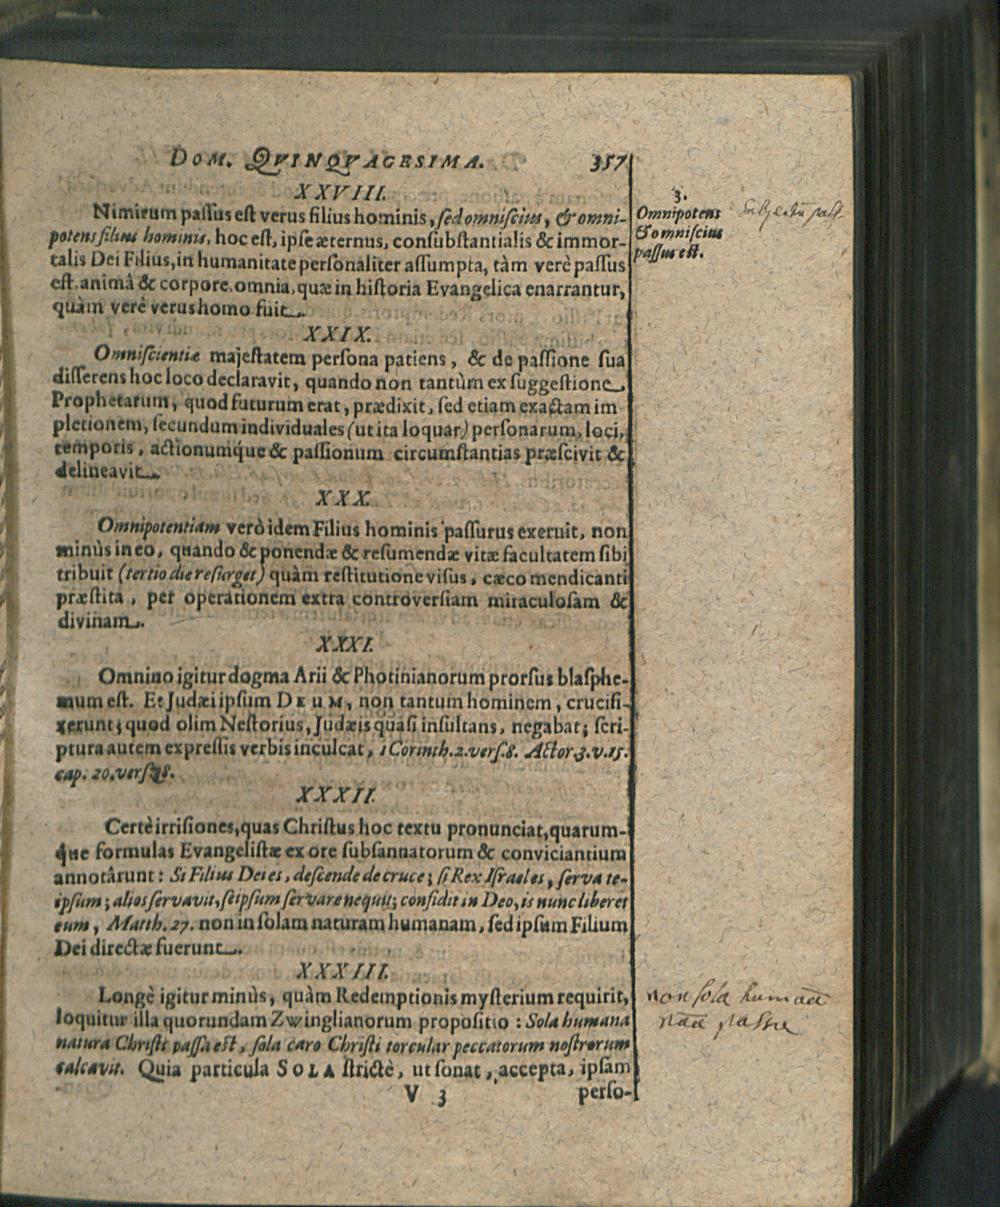 DOM. QVINQVAGESIMA. 357
XXVIII.
Nimirum passus est verus filius hominis, sed omniscius, & omni-
potens filius hominis, hoc est, ipse æternus, consubstantialis & immor-
talis Dei Filius, in humanitate personaliter assumpta, tàm verè passus
est, animâ & corpore, omnia, quæ in historia Evangelica enarrantur,
quàm verè verus homo fuit.
3.
Omnipotens
& omniscius
passus est.
XXIX.
Omniscientiæ majestatem persona patiens, & de passione sua
disserens hoc loco declaravit, quando non tantùm ex suggestione
Prophetarum, quod futurum erat, prædixit, sed etiam exactam im
pletionem, secundum individuales (ut ita loquar) personarum, loci,
temporis, actionumq́ue & passionum circumstantias præscivit &
delineavit.
XXX.
Omnipotentiam verò idem Filius hominis passurus exeruit, non
minùs in eo, quando & ponendæ & resumendæ vitæ facultatem sibi
tribuit (tertio die resurget) quàm restitutione visus, cæco mendicanti
præstita, per operationem extra controversiam miraculosam &
divinam.
XXXI.
Omnino igitur dogma Arii & Photinianorum prorsus blasphe-
mum est. Et Judæi ipsum DEUM, non tantum hominem, crucifi-
xerunt; quod olim Nestorius, Judæis quasi insultans, negabat; scri-
ptura autem expressis verbis inculcat, 1 Corinth. 2. vers. 8. Actor. 3. v. 15.
cap. 20. vers. 28.
XXXII.
Certè irrisiones, quas Christus hoc textu pronunciat, quarum-
que formulas Evangelistæ ex ore subsannatorum & conviciantium
annotârunt: Si Filius Dei es, descende de cruce; si Rex Israel es, serva te-
ipsum; alios servavit, seipsum servare nequit; confidit in Deo, is nunc liberet
eum, Matth. 27. non in solam naturam humanam, sed ipsum Filium
Dei directæ fuerunt.
XXXIII.
Longè igitur minùs, quàm Redemptionis mysterium requirit,
loquitur illa quorundam Zwinglianorum propositio: Sola humana
natura Christi passa est, sola caro Christi torcular peccatorum nostrorum
calcavit. Quia particula SOLA strictè, ut sonat, accepta, ipsam
non sola human
V 3 perso-